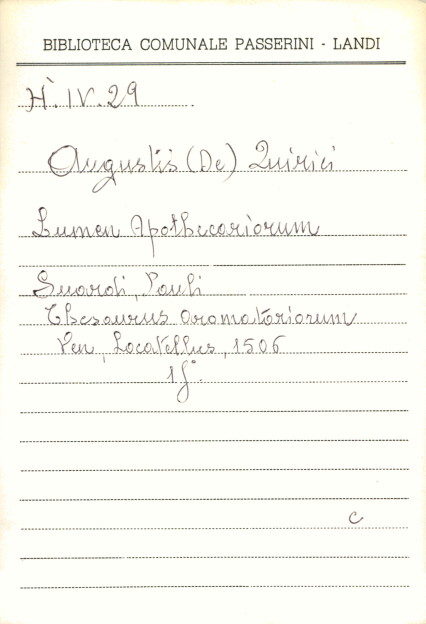 BIBLIOTECA COMUNALE PASSERINI - LANDI
H. IV. 29
Augustis (De) Quirici
Lumen Apothecariorum
Suardi, Pauli
Thesaurus aromatariorum
Ven, Locatellus, 1506
1 f°.
c